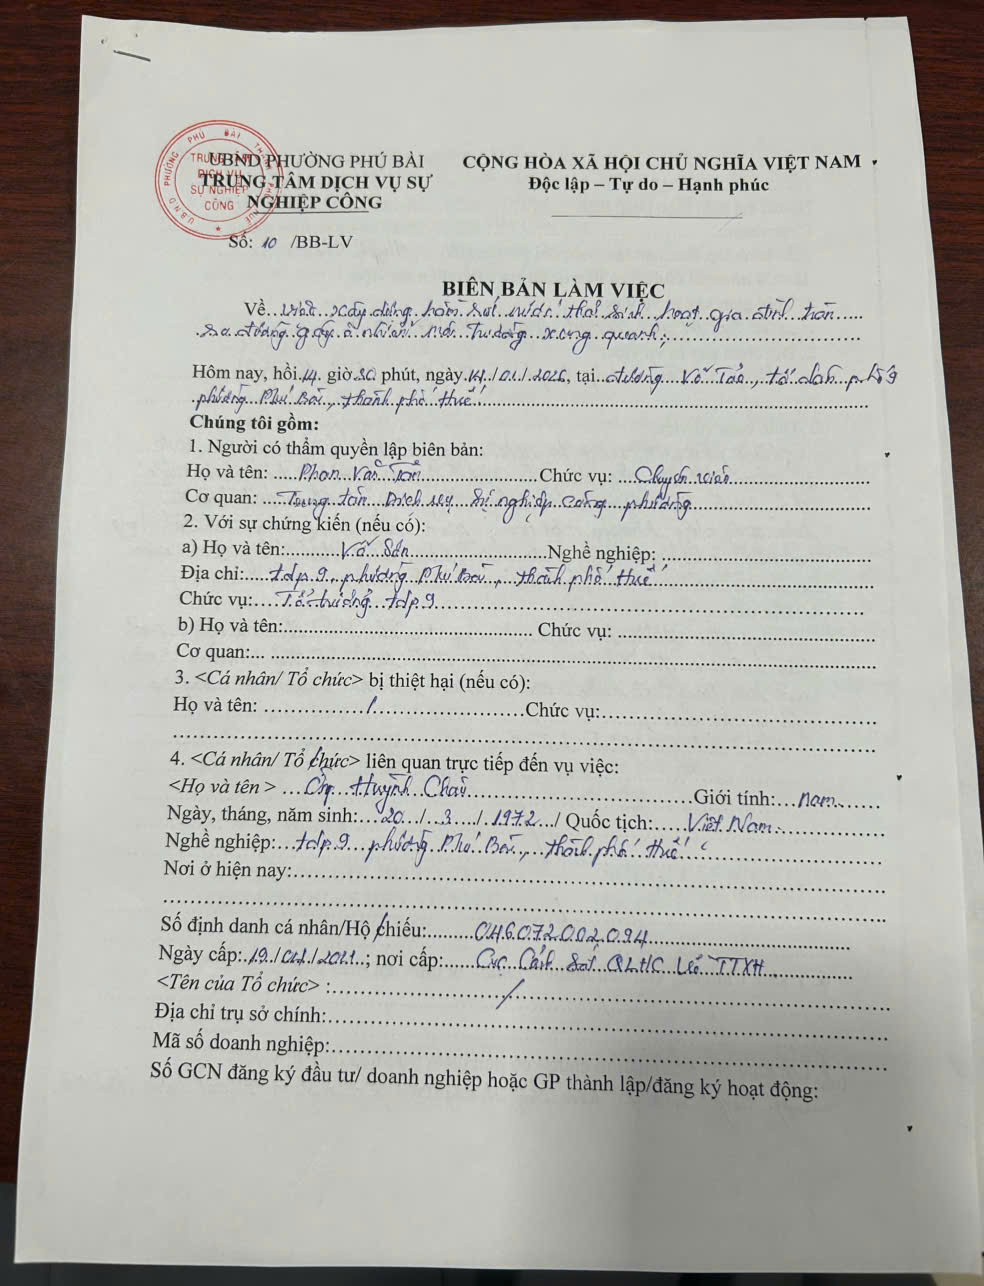 UBND PHƯỜNG PHÚ BÀI
TRUNG TÂM DỊCH VỤ SỰ
NGHIỆP CÔNG
Số: 10 /BB-LV
CỘNG HÒA XÃ HỘI CHỦ NGHĨA VIỆT NAM
Độc lập – Tự do – Hạnh phúc
TRUNG TÂM
DỊCH VỤ
SỰ NGHIỆP
CÔNG
BIÊN BẢN LÀM VIỆC
Về việc xây dựng hầm hút nước thải sinh hoạt gia đình tràn
ra đường gây ô nhiễm môi trường xung quanh;
Hôm nay, hồi 14 giờ 30 phút, ngày 14/01/2026, tại đường Võ Trác, tổ dân phố 9
phường Phú Bài, thành phố Huế
Chúng tôi gồm:
1. Người có thẩm quyền lập biên bản:
Họ và tên: Phan Văn Chức vụ: Chuyên viên
Cơ quan: Trung tâm Dịch vụ sự nghiệp công phường
2. Với sự chứng kiến (nếu có):
a) Họ và tên: Võ Nghề nghiệp:
Địa chỉ: tdp 9, phường Phú Bài, thành phố Huế
Chức vụ: Tổ trưởng tdp 9
b) Họ và tên: Chức vụ:
Cơ quan:
3. <Cá nhân/ Tổ chức> bị thiệt hại (nếu có):
Họ và tên: / Chức vụ:
4. <Cá nhân/ Tổ chức> liên quan trực tiếp đến vụ việc:
<Họ và tên > Ông Huỳnh Giới tính: Nam
Ngày, tháng, năm sinh: 20 / 3 / 1972 / Quốc tịch: Việt Nam
Nghề nghiệp: tdp 9 phường Phú Bài, thành phố Huế
Nơi ở hiện nay:
Số định danh cá nhân/Hộ chiếu: 046072002094
Ngày cấp: 19/04/2021; nơi cấp: Cục Cảnh Sát QLHC Về TTXH
<Tên của Tổ chức> : /
Địa chỉ trụ sở chính:
Mã số doanh nghiệp:
Số GCN đăng ký đầu tư/ doanh nghiệp hoặc GP thành lập/đăng ký hoạt động: